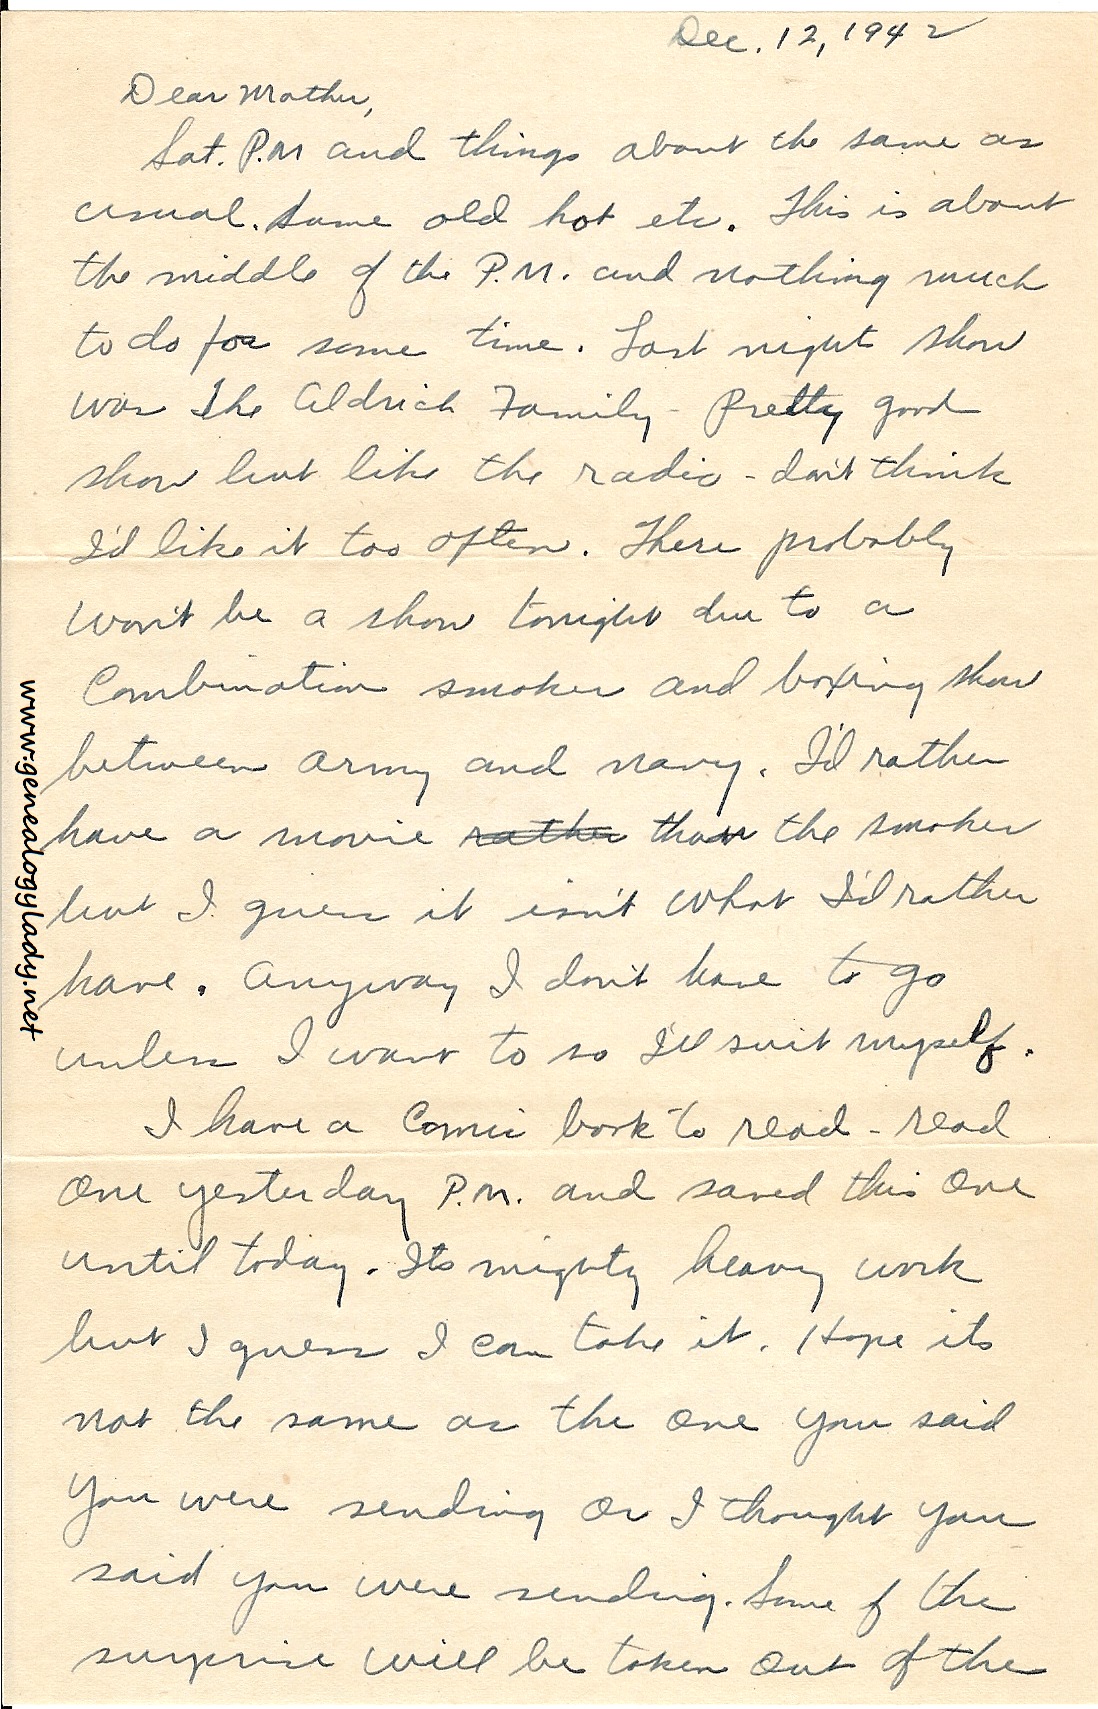 Dec. 12, 1942
Dear Mother,
Sat. P.M and things about the same as
usual. Same old hot etc. This is about
the middle of the P.M. and nothing much
to do for some time. Last night show
was The Aldrich Family - Pretty good
show but like the radio - don't think
I'd like it too often. There probably
won't be a show tonight due to a
Combination smoker and boxing show
between army and navy. I'd rather
have a movie rather than the smoker
but I guess it isn't what I'd rather
have. Anyway I don't have to go
unless I want to so I'll suit myself.
I have a Comic book to read - read
one yesterday P.M. and saved this one
until today. Its mighty heavy work
but I guess I can take it. Hope its
not the same as the one you said
you were sending or I thought you
said you were sending. Some of the
surprise will be taken out of the
www.genealogylady.net